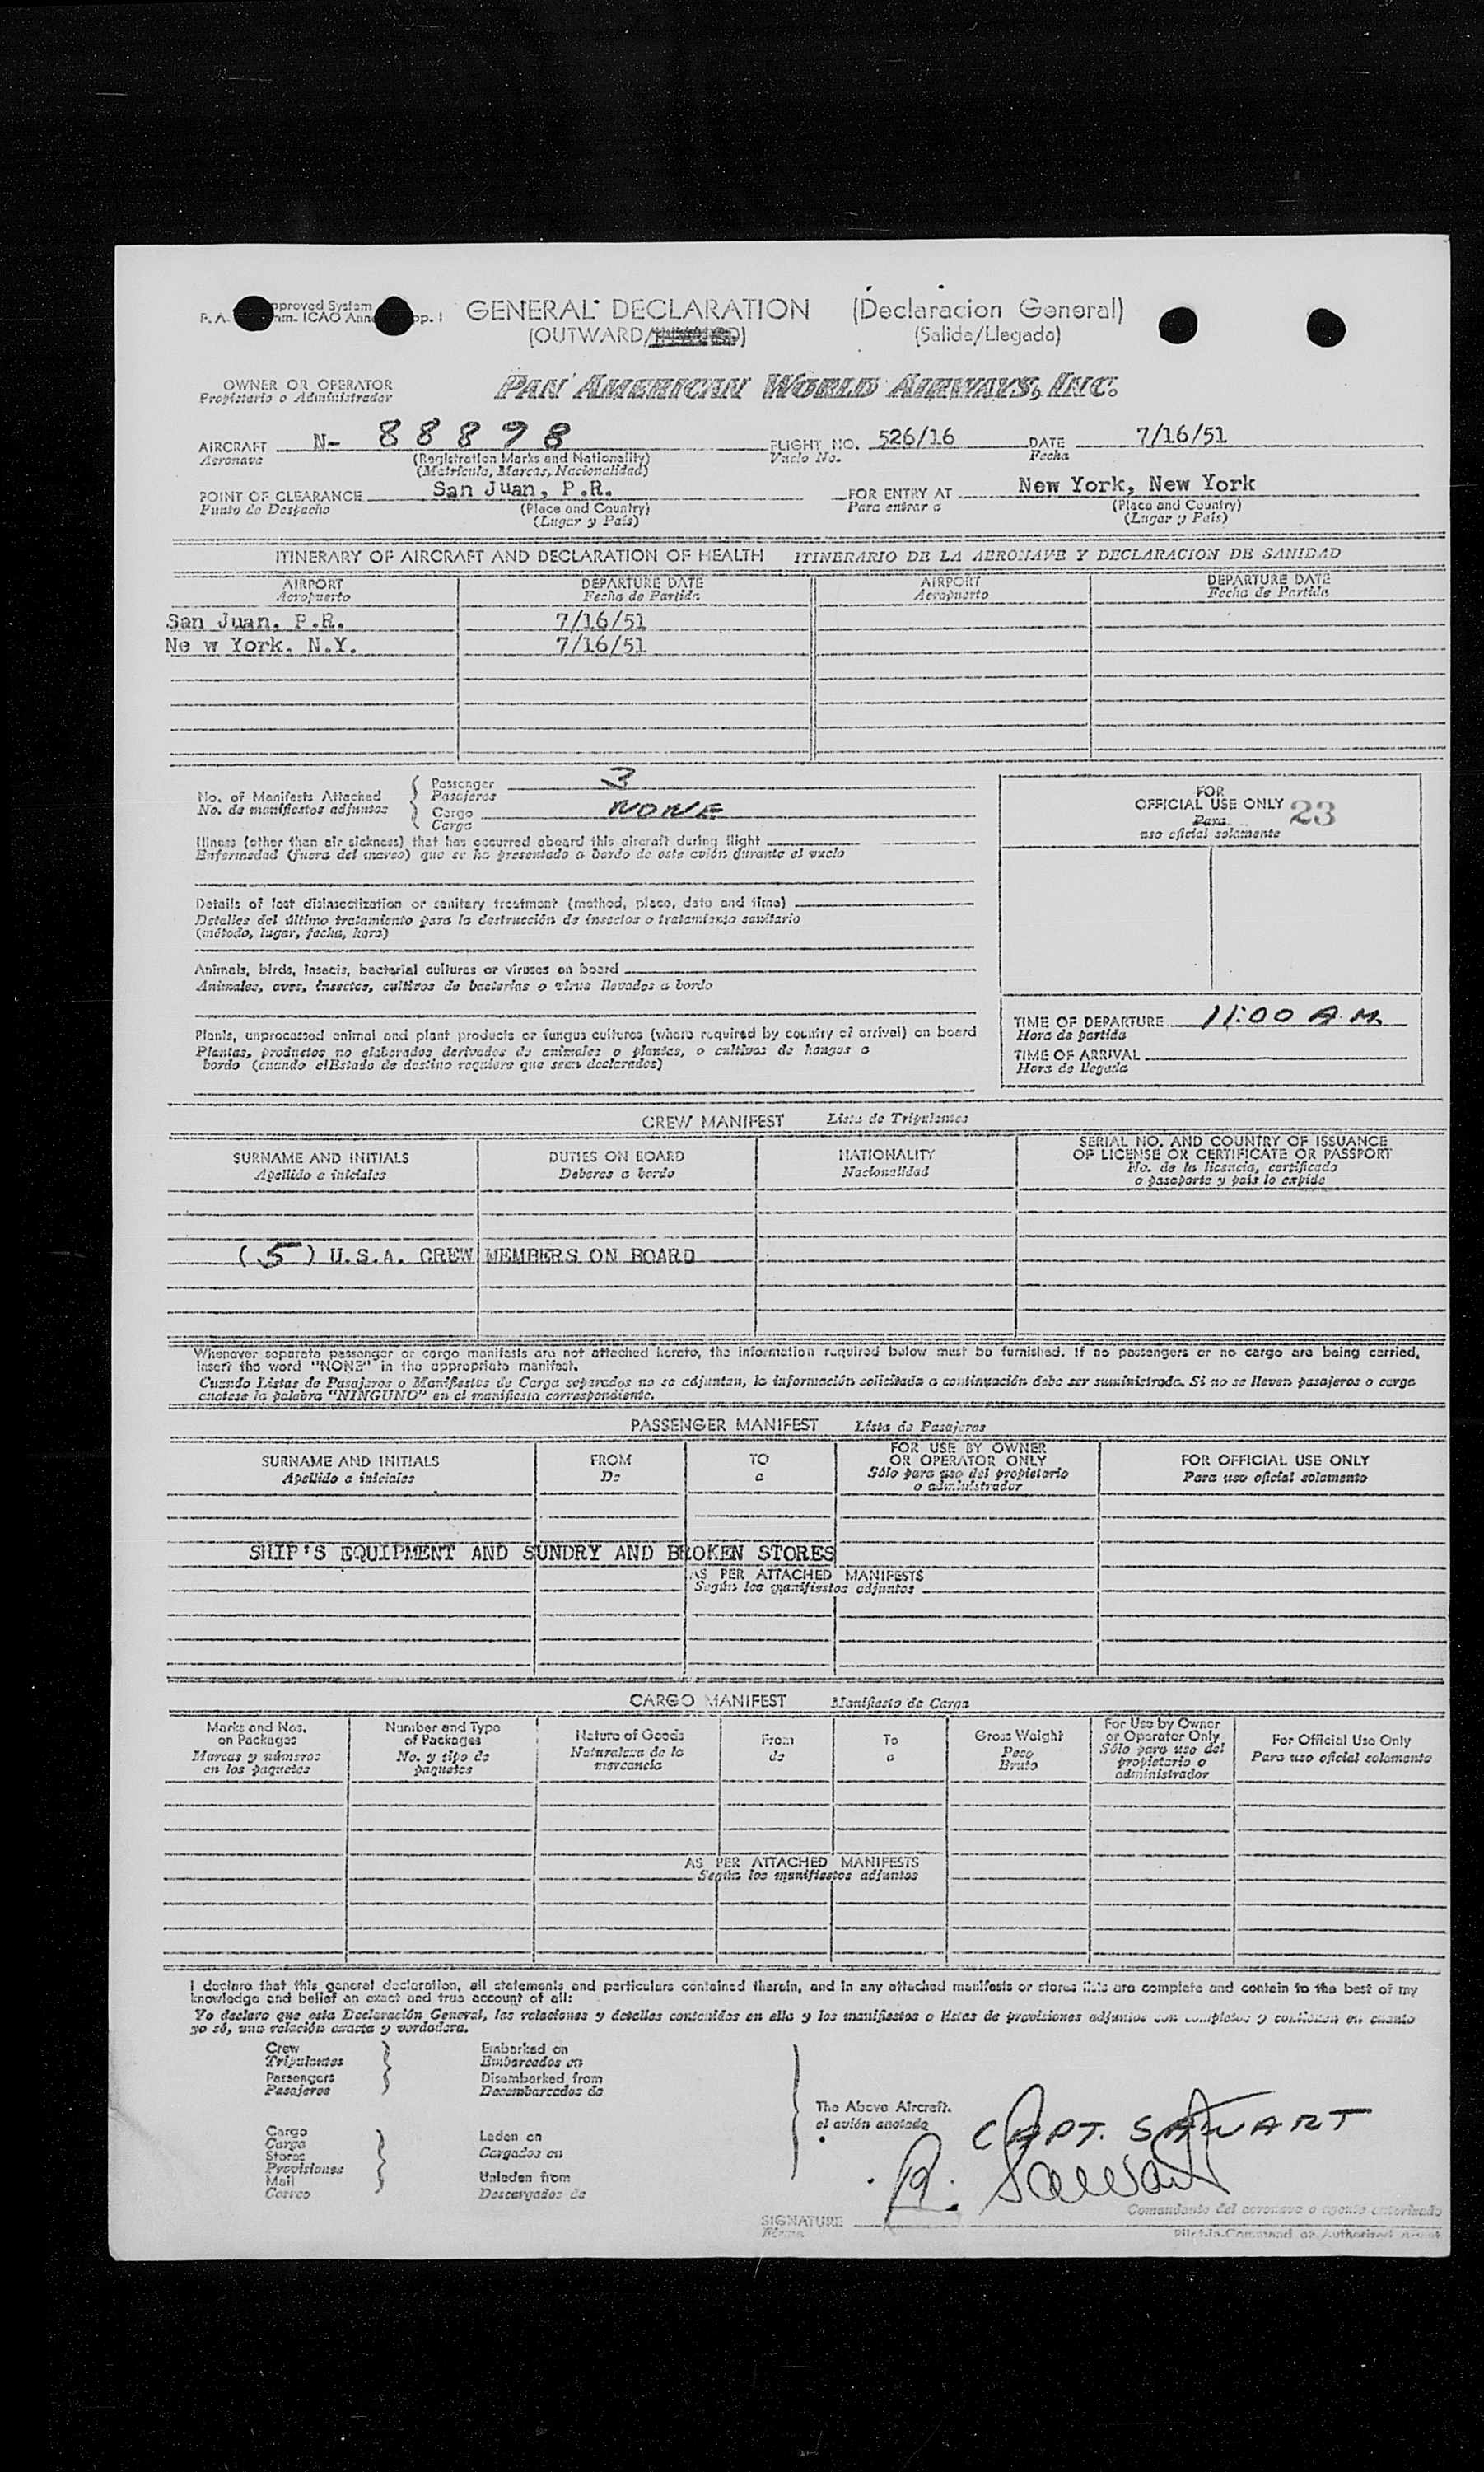 GENERAL DECLARATION (Declaracion General)
(OUTWARD/ (Salida/Llegada)
pproved System
OWNER OR OPERATOR
Propietario o Administrador
PAN AMERICAN WORLD AIRWAYS, INC.
AIRCRAFT N- 88898 FLIGHT NO. 526/16 DATE 7/16/51
Aeronave (Registration Marks and Nationality) Vuelo No. Fecha
(Matricula, Marcas, Nacionalidad)
POINT OF CLEARANCE San Juan, P.R. FOR ENTRY AT New York, New York
Punto de Despacho (Place and Country) Para entrar a (Place and Country)
(Lugar y País) (Lugar y País)
ITINERARY OF AIRCRAFT AND DECLARATION OF HEALTH ITINERARIO DE LA AERONAVE Y DECLARACION DE SANIDAD
AIRPORT DEPARTURE DATE AIRPORT DEPARTURE DATE
Aeropuerto Fecha de Partida Aeropuerto Fecha de Partida
San Juan, P.R. 7/16/51
Ne w York, N.Y. 7/16/51
No. of Manifests Attached
No. de manifiestos adjuntos
Passenger 3
Pasajeros
Cargo NONE
Carga
FOR
OFFICIAL USE ONLY 23
Para
uso oficial solamente
Illness (other than air sickness) that has occurred aboard this aircraft during flight
Enfermedad (fuera del mareo) que se ha presentado a bordo de este avión durante el vuelo
Details of last disinsectization or sanitary treatment (method, place, date and time)
Detalles del último tratamiento para la destrucción de insectos o tratamiento sanitario
(método, lugar, fecha, hora)
Animals, birds, insects, bacterial cultures or viruses on board
Animales, aves, insectos, cultivos de bacterias o virus llevados a bordo
Plants, unprocessed animal and plant products or fungus cultures (where required by country of arrival) on board
Plantas, productos no elaborados derivados de animales o plantas, o cultivos de hongos a
bordo (cuando el Estado de destino requiere que sean declarados)
TIME OF DEPARTURE 11:00 A.M.
Hora de partida
TIME OF ARRIVAL
Hora de llegada
CREW MANIFEST Lista de Tripulantes
SURNAME AND INITIALS DUTIES ON BOARD NATIONALITY SERIAL NO. AND COUNTRY OF ISSUANCE
OF LICENSE OR CERTIFICATE OR PASSPORT
Apellido e iniciales Deberes a bordo Nacionalidad No. de la licencia, certificado
o pasaporte y país lo expide
(5) U.S.A. CREW MEMBERS ON BOARD
Whenever separate passenger or cargo manifests are not attached hereto, the information required below must be furnished. If no passengers or no cargo are being carried,
insert the word "NONE" in the appropriate manifest.
Cuando Listas de Pasajeros o Manifiestos de Carga separados no se adjuntan, la información solicitada a continuación debe ser suministrada. Si no se lleven pasajeros o carga
anotese la palabra "NINGUNO" en el manifiesto correspondiente.
PASSENGER MANIFEST Lista de Pasajeros
SURNAME AND INITIALS FROM TO FOR USE BY OWNER
OR OPERATOR ONLY FOR OFFICIAL USE ONLY
Apellido e iniciales De a Sólo para uso del propietario
o administrador Para uso oficial solamente
SHIP'S EQUIPMENT AND SUNDRY AND BROKEN STORES
AS PER ATTACHED MANIFESTS
Según los manifiestos adjuntos
CARGO MANIFEST Manifiesto de Carga
Marks and Nos.
on Packages
Marcas y números
en los paquetes
Number and Type
of Packages
No. y tipo de
paquetes
Nature of Goods
Naturaleza de la
mercancía
From
de
To
a
Gross Weight
Peso
Bruto
For Use by Owner
or Operator Only
Sólo para uso del
propietario o
administrador
For Official Use Only
Para uso oficial solamente
AS PER ATTACHED MANIFESTS
Según los manifiestos adjuntos
I declare that this general declaration, all statements and particulars contained therein, and in any attached manifests or stores lists are complete and contain to the best of my
knowledge and belief an exact and true account of all:
Yo declaro que esta Declaración General, las relaciones y detalles contenidos en ella y los manifiestos o listas de provisiones adjuntos son completos y contienen en cuanto
yo sé, una relación exacta y verdadera.
Crew
Tripulantes
Passengers
Pasajeros
Embarked on
Embarcados en
Disembarked from
Desembarcados de
Cargo
Carga
Stores
Provisiones
Mail
Correo
Laden on
Cargados en
Unladen from
Descargados de
The Above Aircraft.
el avión anotado
CAPT. SAWART
R. Sawart
SIGNATURE
Firma
Comandante del aeronave o agente autorizado
Pilot-in-Command or Authorized Agent